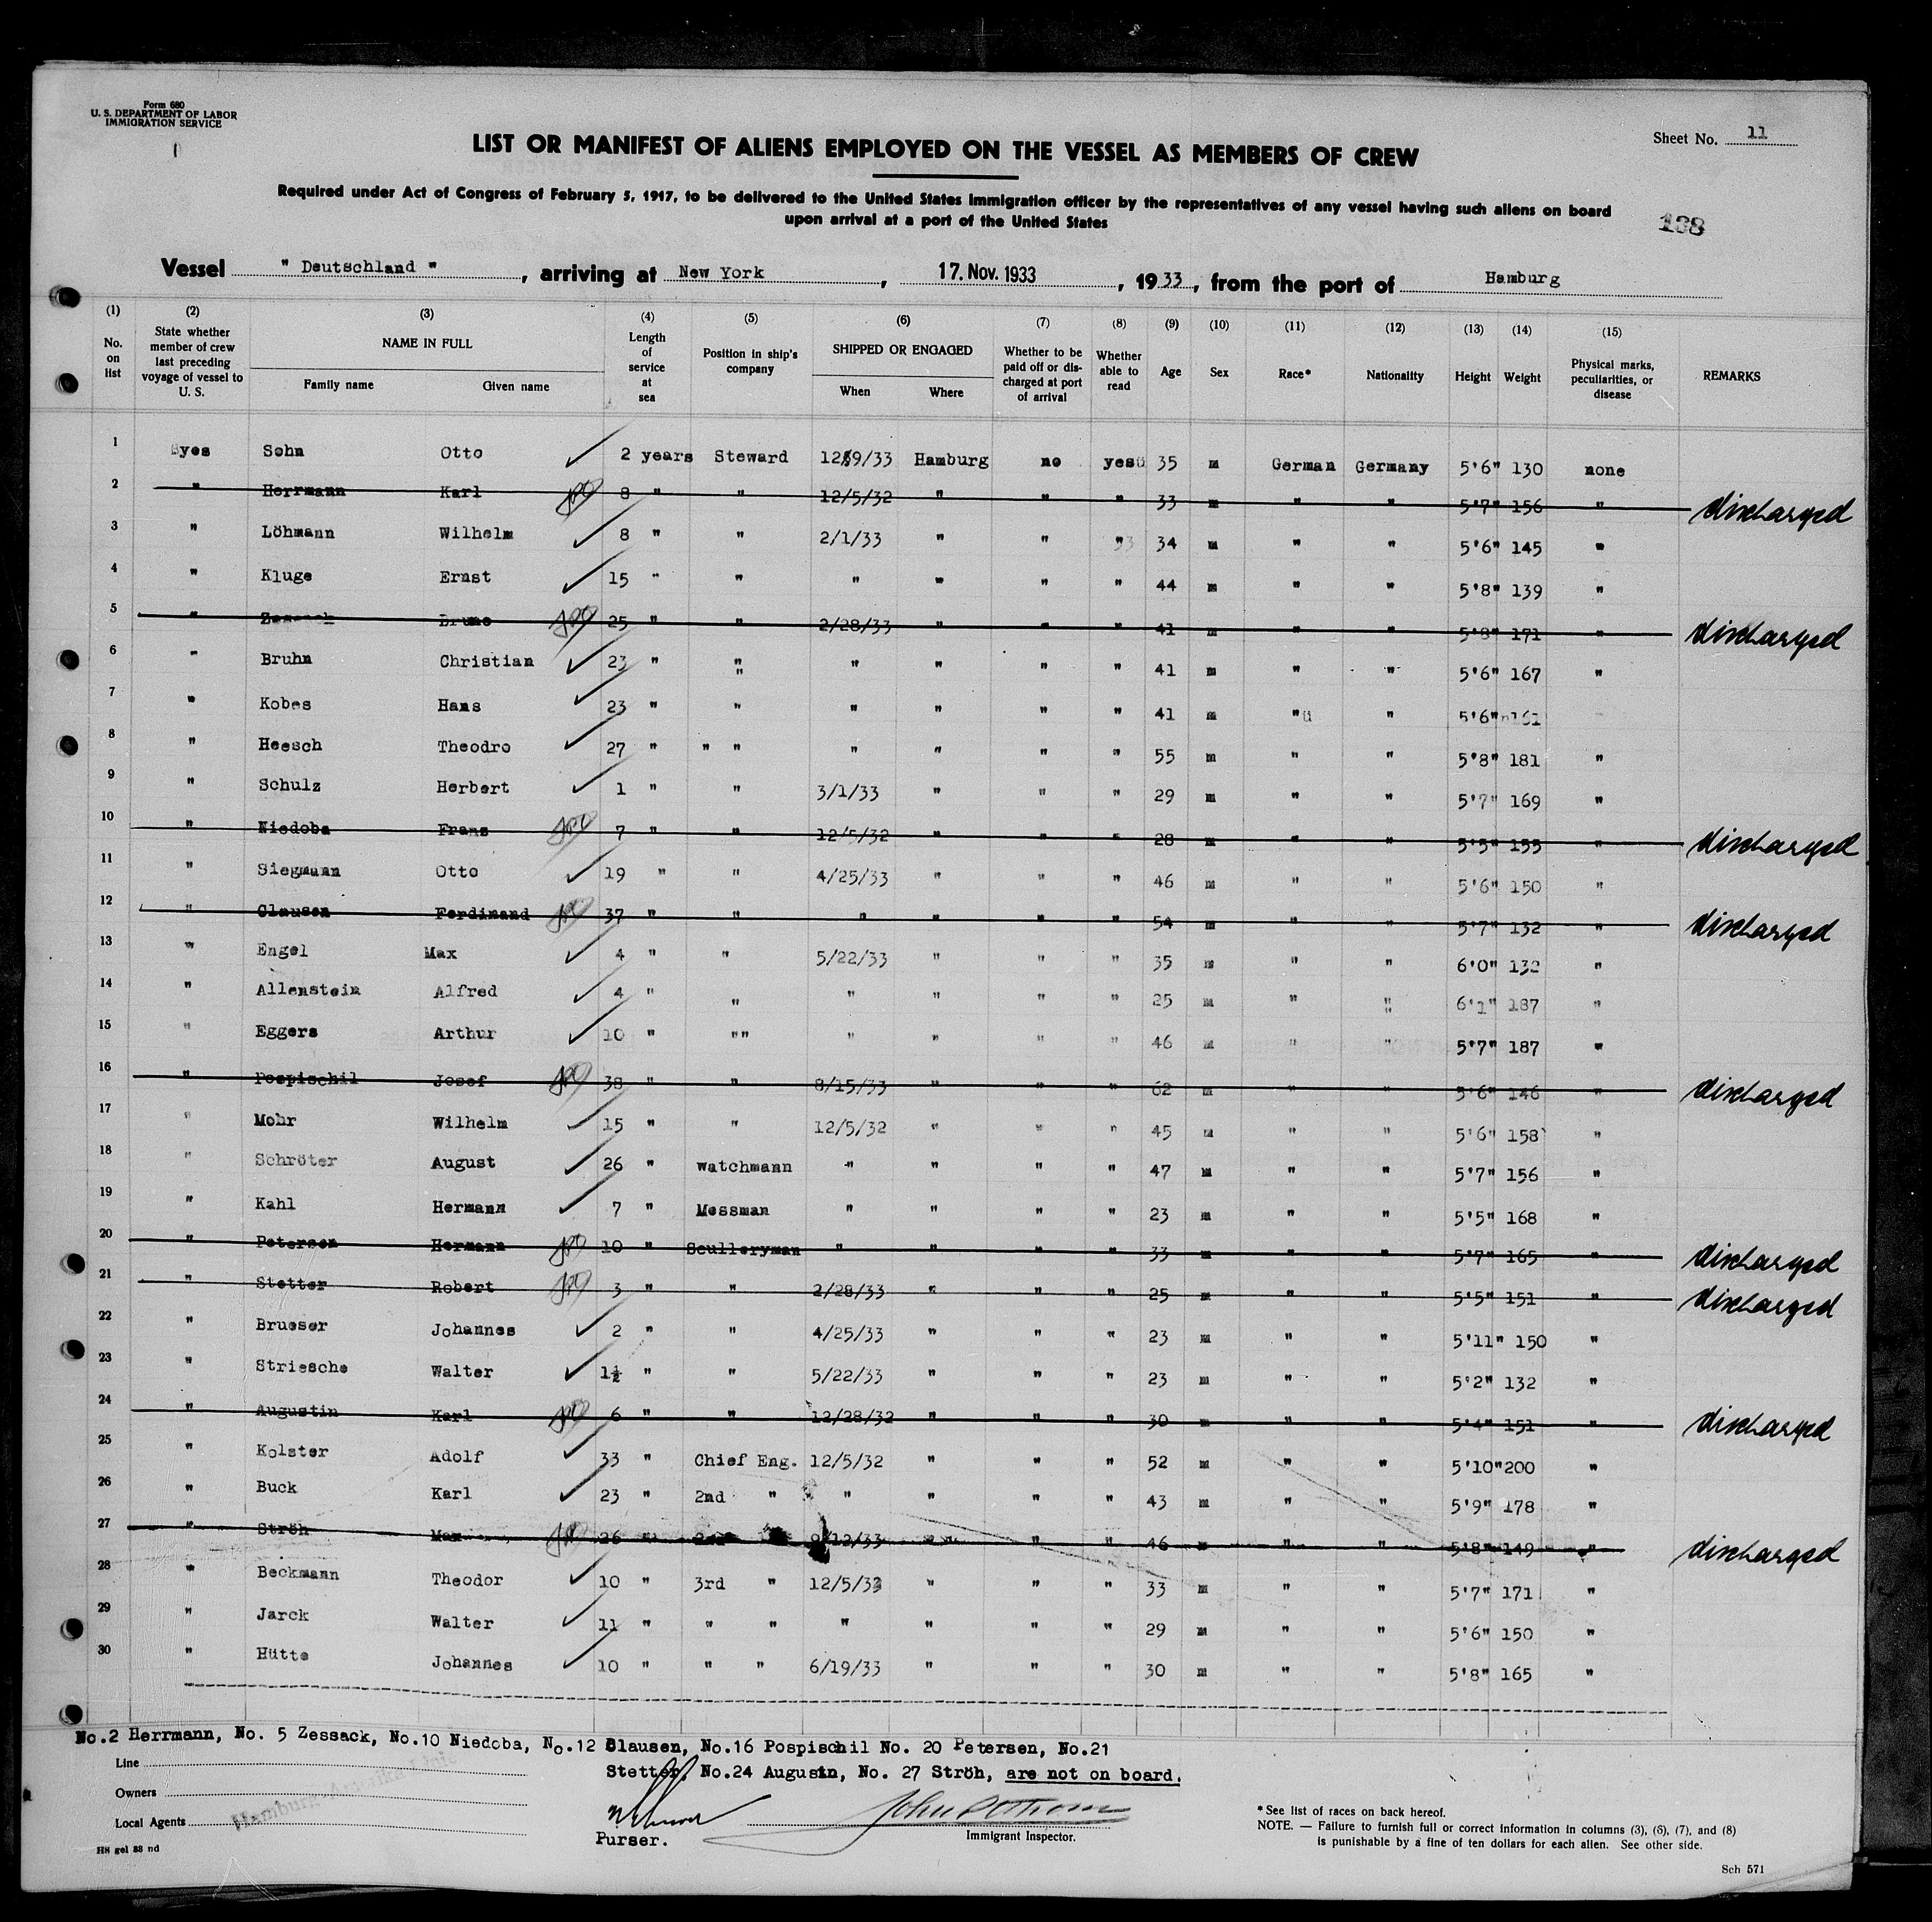 Form 680
U. S. DEPARTMENT OF LABOR
IMMIGRATION SERVICE
Sheet No. 11
LIST OR MANIFEST OF ALIENS EMPLOYED ON THE VESSEL AS MEMBERS OF CREW
Required under Act of Congress of February 5, 1917, to be delivered to the United States immigration officer by the representatives of any vessel having such aliens on board
upon arrival at a port of the United States
138
Vessel " Deutschland " , arriving at New York , 17. Nov. 1933 , 1933 , from the port of Hamburg
(1) (2) (3) (4) (5) (6) (7) (8) (9) (10) (11) (12) (13) (14) (15)
No. on list State whether member of crew last preceding voyage of vessel to U. S. NAME IN FULL Family name Given name Length of service at sea Position in ship's company SHIPPED OR ENGAGED When Where Whether to be paid off or discharged at port of arrival Whether able to read Age Sex Race* Nationality Height Weight Physical marks, peculiarities, or disease REMARKS
1 yes Sohn Otto 2 years Steward Hamburg no yes 35 m German Germany 5'6" 130 none
2 " Herrmann Karl 8 " " 12/5/32 " " " 33 m " " 5'7" 156 " discharged
3 " Löhmann Wilhelm 8 " " 2/1/33 " " " 34 m " " 5'6" 145 "
4 " Kluge Ernst 15 " " " " " " 44 m " " 5'8" 139 "
5 " Bruno 25 " " 2/28/33 " " " 41 m " " 5'8" 171 " discharged
6 " Bruhn Christian 23 " " " " " " 41 m " " 5'6" 167 "
7 " Kobes Hans 23 " " " " " " 41 m " " 5'6" 161
8 " Heesch Theodro 27 " " " " " " " 55 m " " 5'8" 181 "
9 " Schulz Herbert 1 " " 3/1/33 " " " 29 m " " 5'7" 169 "
10 " Niedoba Franz 7 " " 12/5/32 " " " 28 m " " 5'5" 155 " discharged
11 " Siegmann Otto 19 " " 4/25/33 " " " 46 m " " 5'6" 150 "
12 " Clausen Ferdinand 37 " " " " " " 54 m " " 5'7" 132 " discharged
13 " Engel Max 4 " " 5/22/33 " " " 35 m " " 6'0" 132 "
14 " Allenstein Alfred 4 " " " " " " 25 m " " 6'1" 187 "
15 " Eggers Arthur 10 " "" " " " " 46 m " " 5'7" 187 "
16 " Pospischil Josef 38 " " 8/15/33 " " " 62 m " " 5'6" 146 " discharged
17 " Mohr Wilhelm 15 " " 12/5/32 " " " 45 m " " 5'6" 158 "
18 " Schröter August 26 " Watchmann " " " " 47 m " " 5'7" 156 "
19 " Kahl Hermann 7 " Messman " " " " 23 m " " 5'5" 168 "
20 " Petersen Hermann 10 " Sculleryman " " " " 33 m " " 5'7" 165 " discharged
21 " Stetter Robert 3 " " 2/28/33 " " " 25 m " " 5'5" 151 " discharged
22 " Brueser Johannes 2 " " 4/25/33 " " " 23 m " " 5'11" 150 "
23 " Striesche Walter 1½ " " 5/22/33 " " " 23 m " " 5'2" 132 "
24 " Augustin Karl 6 " " 12/28/32 " " " 30 m " " 5'4" 151 " discharged
25 " Kolster Adolf 33 " Chief Eng. 12/5/32 " " " 52 m " " 5'10" 200 "
26 " Buck Karl 23 " 2nd " " " " " 43 m " " 5'9" 178 "
27 " Ströh Max 26 " " " " 46 m " " 5'8" 149 " discharged
28 " Beckmann Theodor 10 " 3rd " " " " 33 m " " 5'7" 171 "
29 " Jarck Walter 11 " " " " " " " 29 m " " 5'6" 150 "
30 " Hütte Johannes 10 " " " 6/19/33 " " " 30 m " " 5'8" 165 "
No.2 Herrmann, No. 5 Zessack, No.10 Niedoba, No.12 Clausen, No.16 Pospischil No. 20 Petersen, No.21
Stetter, No.24 Augustin, No. 27 Ströh, are not on board.
Line
Owners
Local Agents
Hamburg-Amerika
Purser.
Immigrant Inspector.
*See list of races on back hereof.
NOTE. — Failure to furnish full or correct information in columns (3), (6), (7), and (8)
is punishable by a fine of ten dollars for each alien. See other side.
HS gel 88 nd
Sch 571